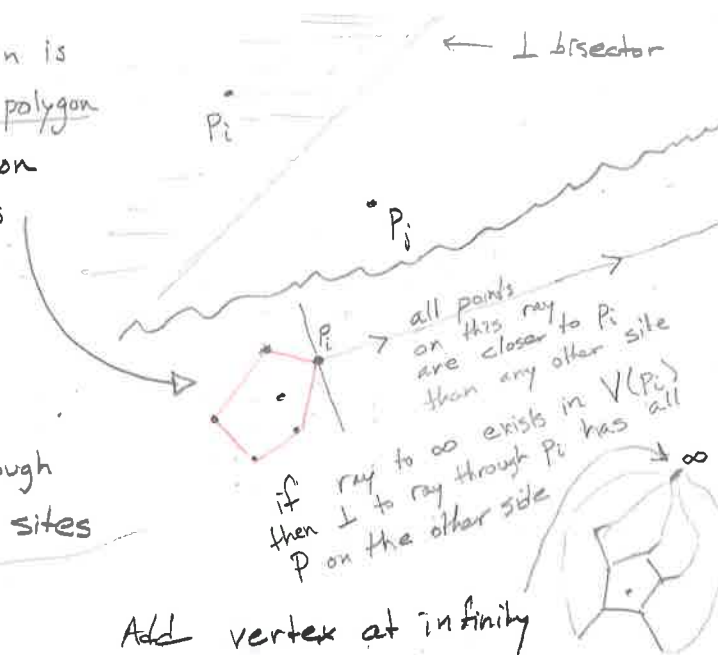 n is
polygon
on
s
ough
sites
← ⊥ bisector
Pi
Pj
Pi
all points
on this ray
are closer to Pi
than any other site
if ray to ∞ exists in V(Pi)
then ⊥ to ray through Pi has all
P on the other side
∞
Add vertex at infinity